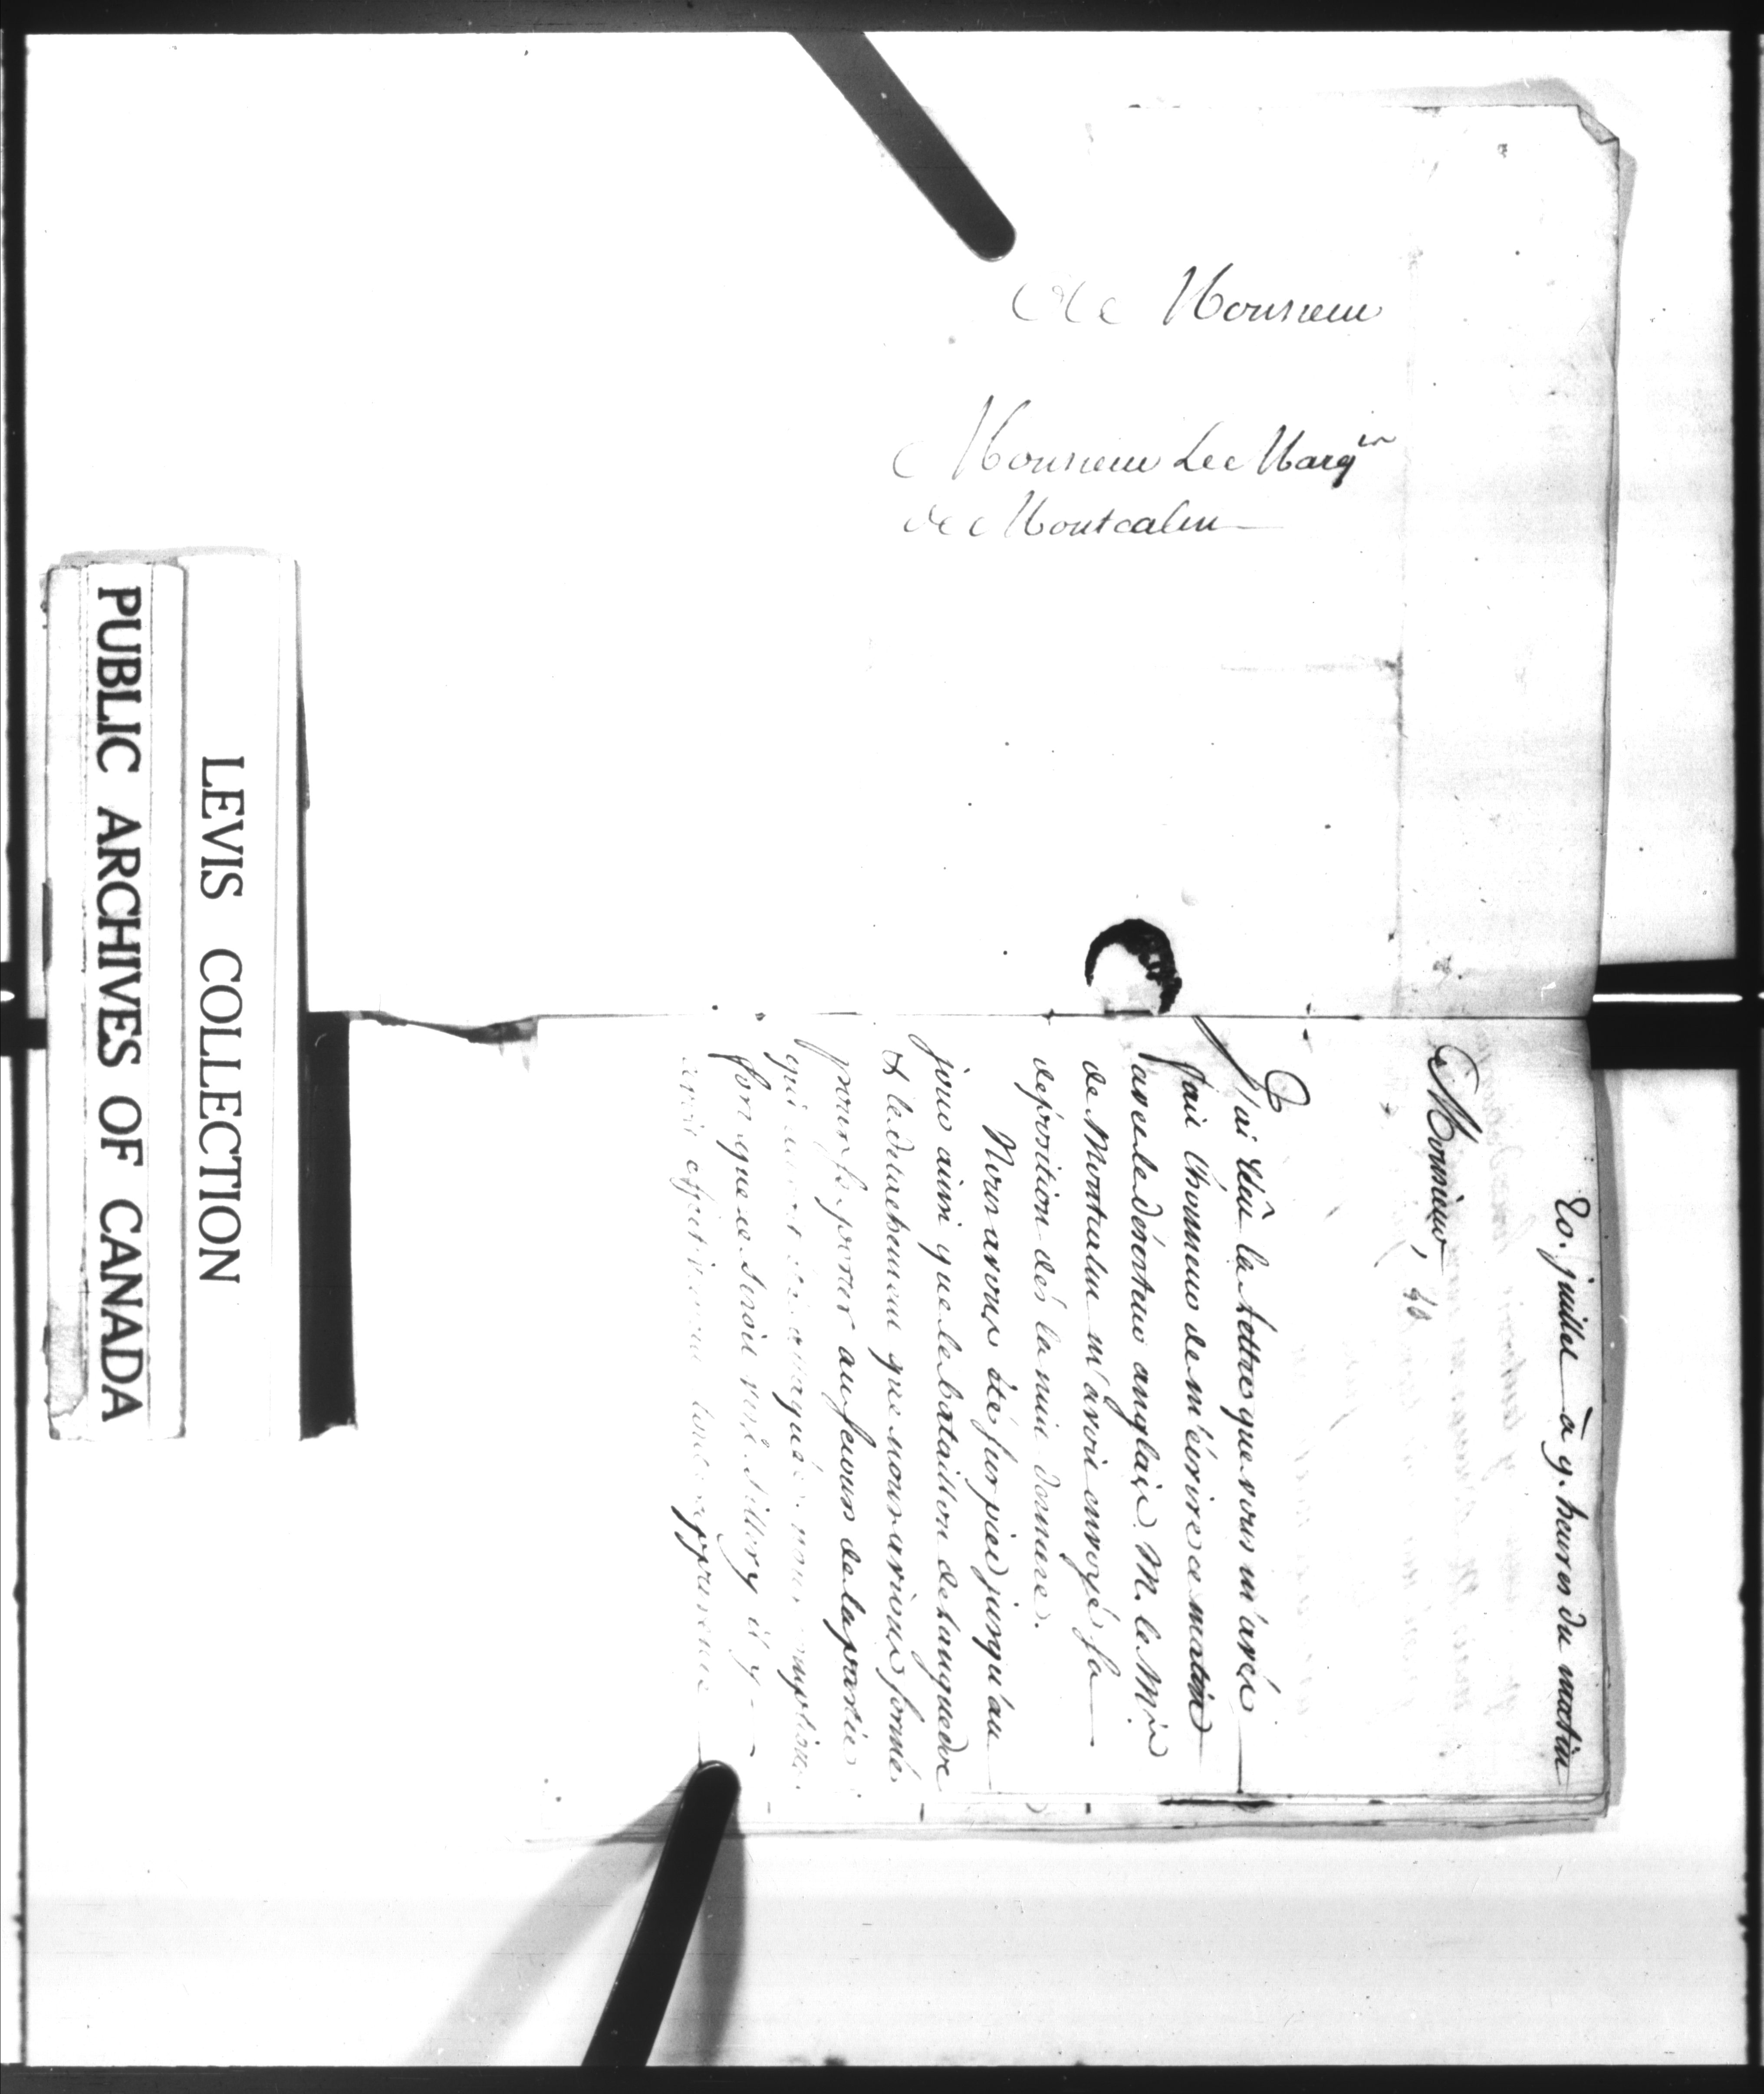 A Monsieur
Monsieur Le Marq^is
de Montcalm
20. juillet à 9. heures du matin
Monsieur, 40
J'ai reçû la Lettre que vous m'avés
fait l'honneur de m'écrire ce matin
avec le déserteur anglais. M. le M.is
de Montcalm m'avoit envoyé sa
déposition dés la nuit derniere.
Nous avons été sur pied jusqu'au
jour ainsi que le bataillon de Languedoc
& le détachement que nous avions formé
pour se porter au secours de la partie
qui seroit attaquée. nous comptions
fort que ce seroit vers Sillery il y
avoit effectivement toute apparence
LEVIS COLLECTION
PUBLIC ARCHIVES OF CANADA